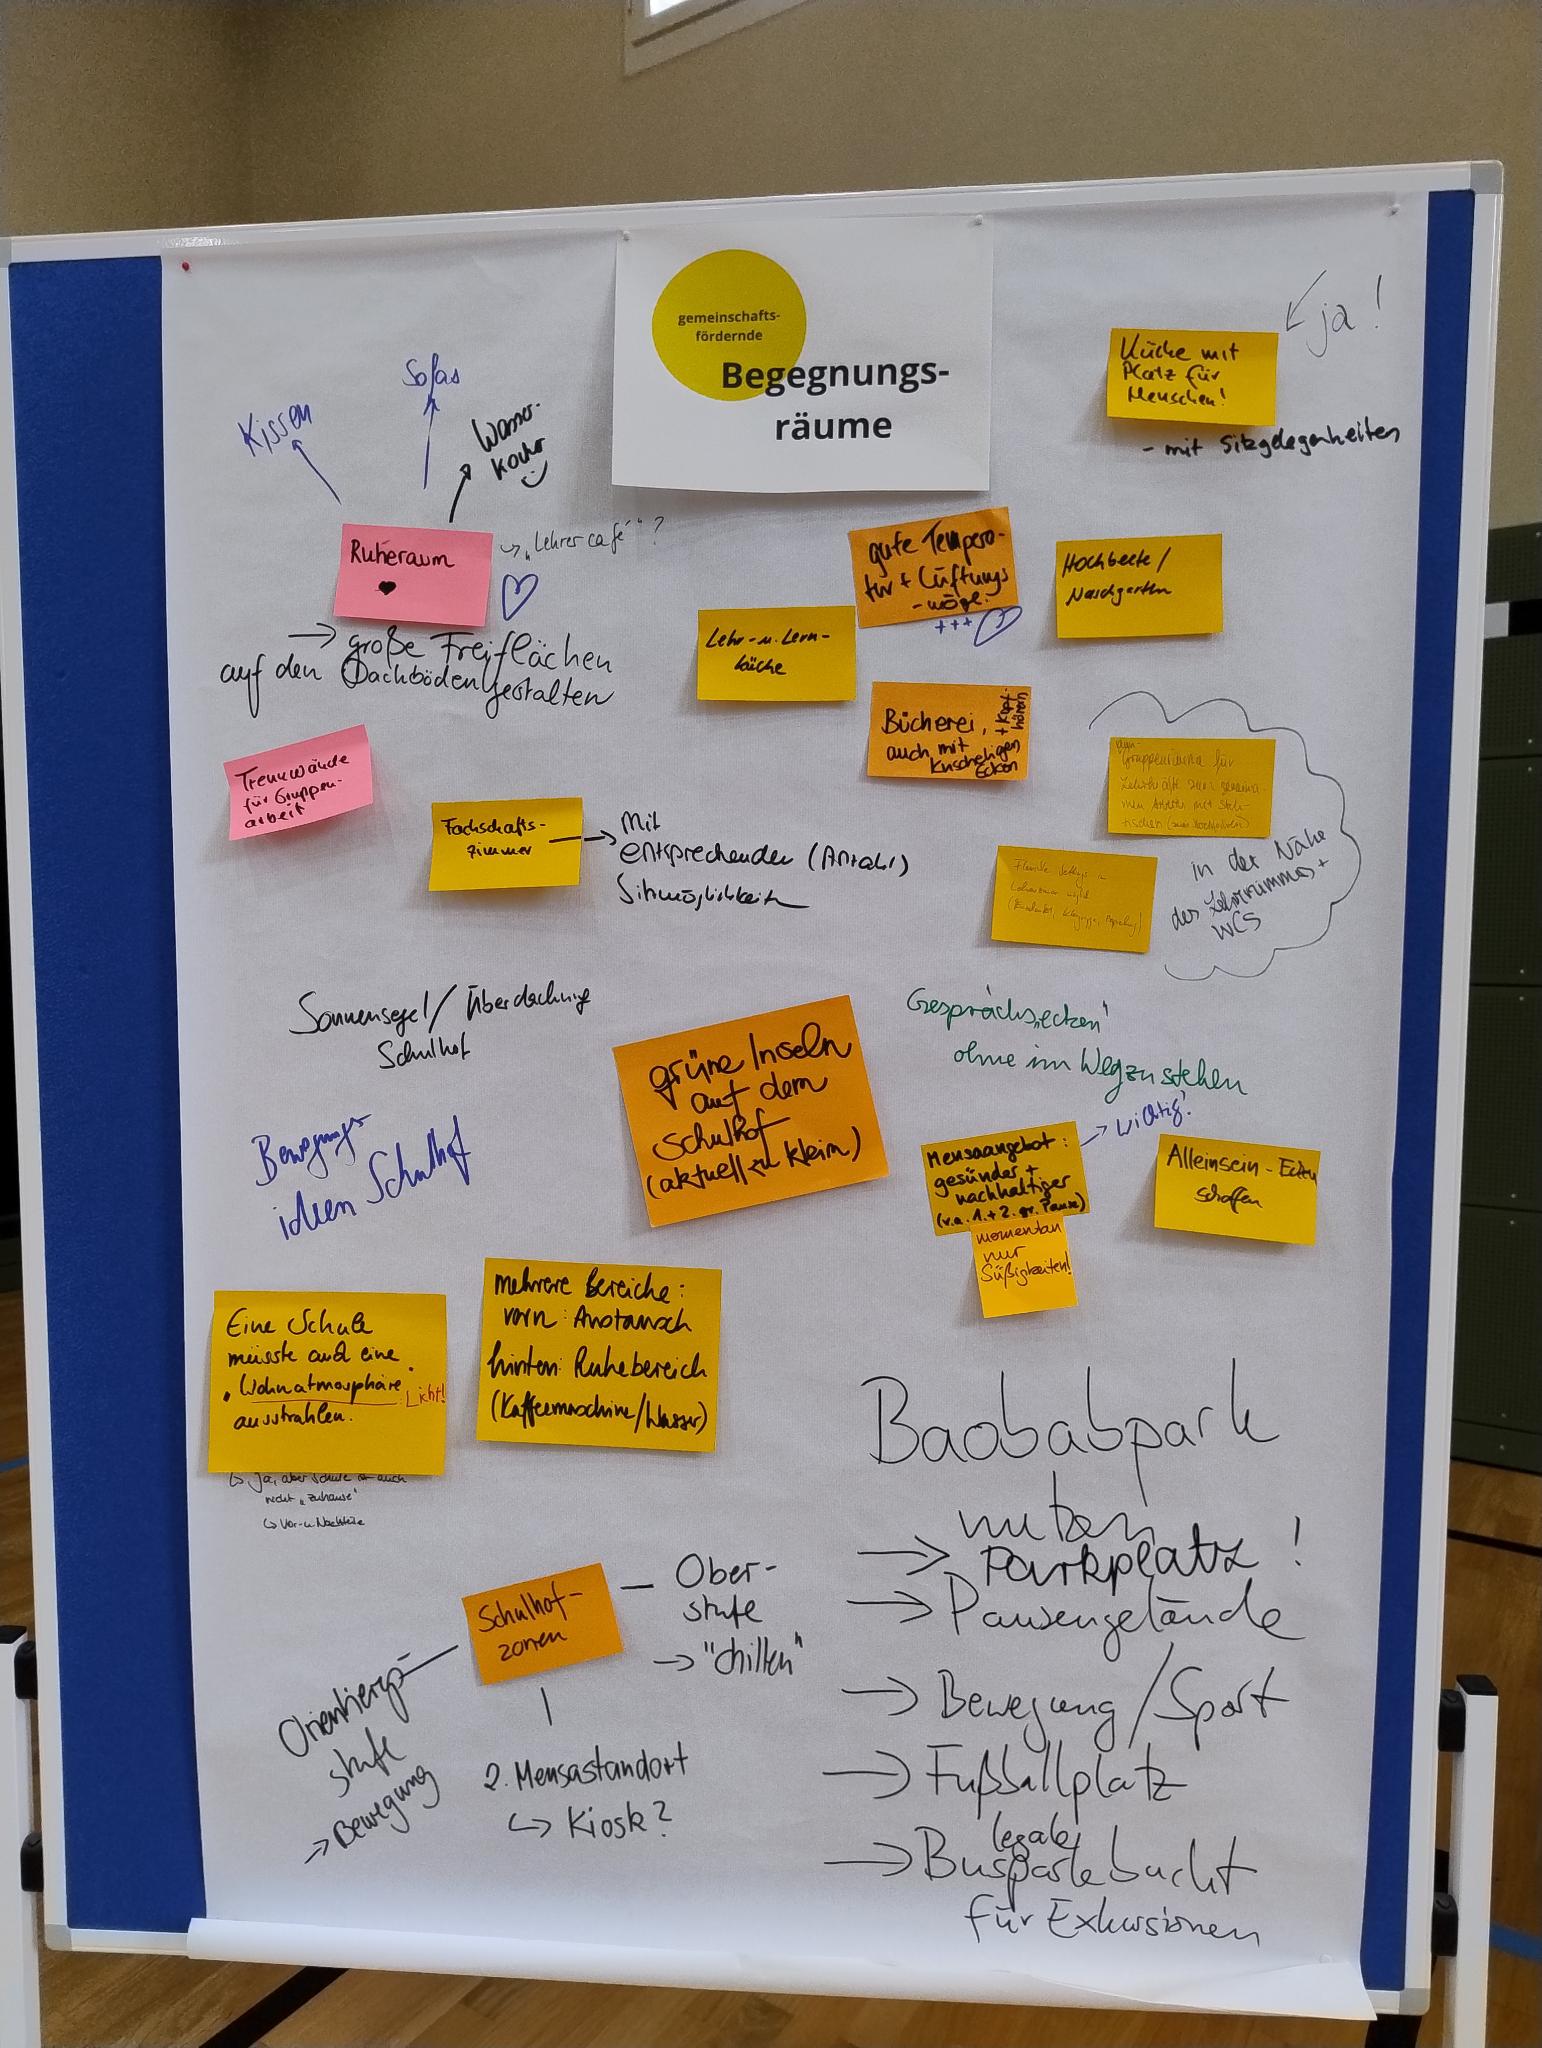 gemeinschafts-
fördernde
Begegnungs-
räume
Kissen
Sofas
Wasser-
kocher
Ruheraum
"Lehrercafé"?
→ große Freiflächen
auf den Dachböden gestalten
Küche mit
Platz für
Menschen!
ja!
- mit Sitzgelegenheiten
gute Tempera-
tur + Lüftungs
-mögl.
+++
Hochbeete/
Naschgarten
Lehr- u. Lern-
küche
Bücherei,
auch mit
kuscheligen
Ecken
+ Kopf-
hörern
Trennwände
für Gruppen-
arbeit
Fachschafts-
zimmer
→ Mit
entsprechender (Anzahl)
Sitzmöglichkeiten
Gruppenräume für
Lehrkräfte zum gemeinsa-
men Arbeiten mit Steh-
tischen
Flexible Settings im
Lehrerzimmer
in der Nähe
des Lehrerzimmers +
WCs
Sonnensegel/Überdachung
Schulhof
grüne Inseln
auf dem
Schulhof
(aktuell zu klein)
Gesprächs"ecken"
ohne im Weg zu stehen
Bewegungs-
ideen Schulhof
Mensaangebot:
gesünder +
nachhaltiger
(v.a. 1.+2. gr. Pause)
→ wichtig!
momentan
nur
Süßigkeiten!
Alleinsein-Ecken
schaffen
Eine Schule
müsste auch eine
"Wohnatmosphäre"
ausstrahlen.
Licht!
↳ Ja, aber Schule ist auch
nicht "zuhause"
↳ Vor- u. Nachteile
mehrere Bereiche:
vorn: Austausch
hinten: Ruhebereich
(Kaffeemaschine/Wasser)
Baobabpark
nutzen
→ Parkplatz!
→ Pausengelände
→ Bewegung/Sport
→ Fußballplatz
legale
→ Busparkbucht
für Exkursionen
Schulhof-
zonen
Ober-
stufe
→ "chillen"
Orientierungs-
stufe
→ Bewegung
2. Mensastandort
↳ Kiosk?